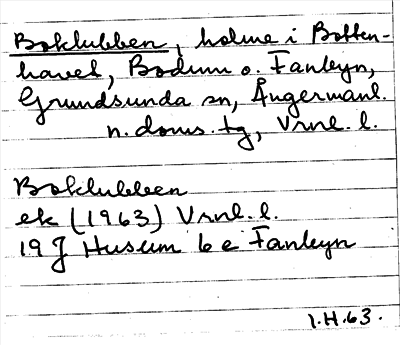 Boklubben, holme i Botten-
havet, Bodum o. Fanbyn,
Grundsunda sn, Ångermanl.
n. doms. tg, Vrnl. l.
Boklubben
ek (1963) Vrnl. l.
19 J Husum 6 e Fanbyn
1.H.63.